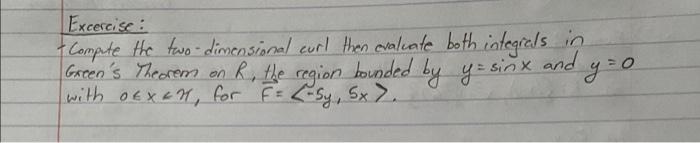 Excercise:
Compute the two-dimensional curl then evaluate both integrals in
Green's Theorem on R, the region bounded by y=sinx and y=0
with 0≤x≤π, for F = <-5y, 5x>.